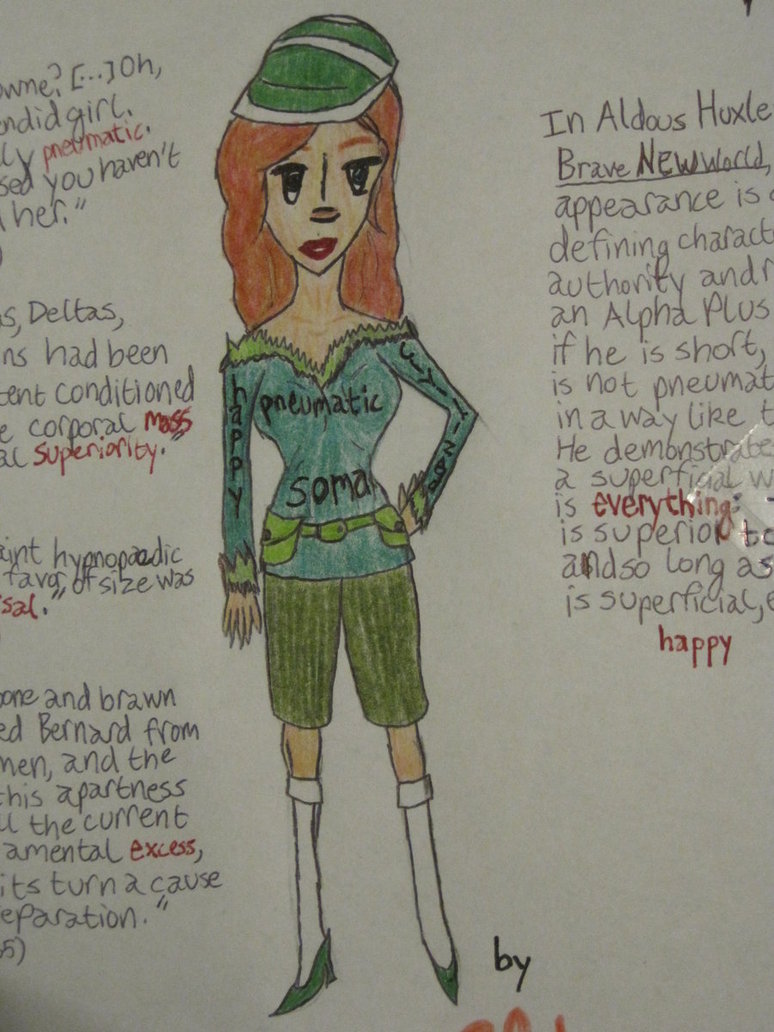 owne? [...] Oh,
endid girl.
ly pneumatic.
sed you haven't
her."
s, Deltas,
ns had been
tent conditioned
e corporal mass
al superiority."
aint hypnopaedic
favor of size was
sal."
one and brawn
ed Bernard from
men, and the
this apartness
ll the current
amental excess,
its turn a cause
eparation."
5)
happy
pneumatic
soma
In Aldous Huxle
Brave NEW World,
appearance is
defining charact
authority and
an Alpha Plus
if he is short,
is not pneumat
in a way like t
He demonstrate
a superficial w
is everything:
is superior to
and so long as
is superficial, e
happy
by